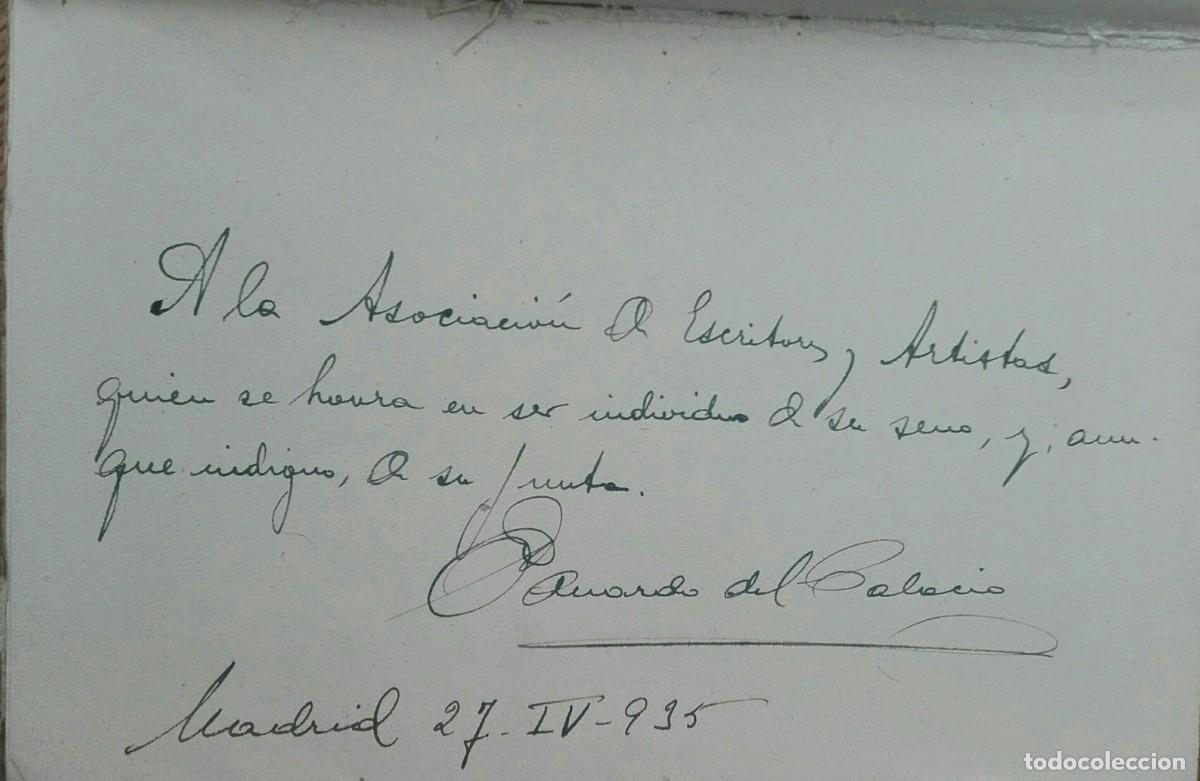 A la Asociación de Escritores y Artistas,
quien se honra en ser individuo de su seno, y, aun-
que indigno, de su Junta.
Eduardo del Palacio
Madrid 27-IV-935
todocoleccion